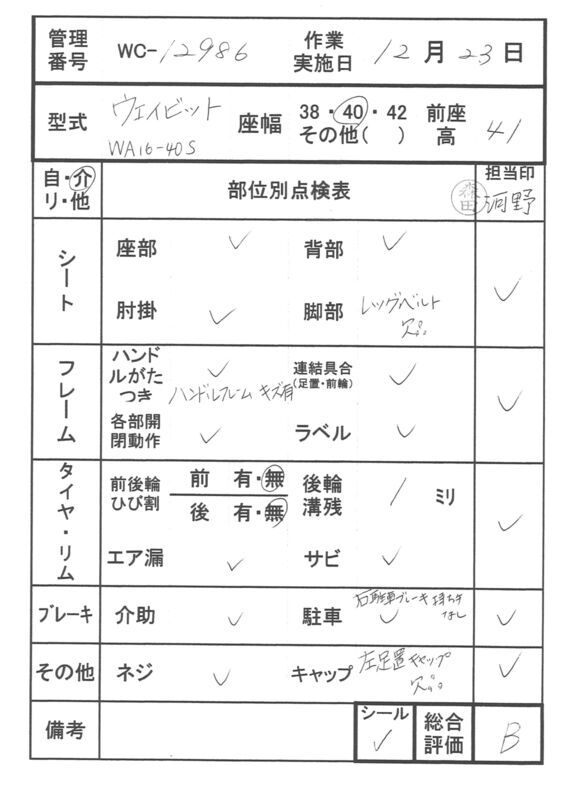 管理番号 WC-12986 作業実施日 12月23日
型式 ウェイビット WA16-40S 座幅 38・40・42 その他( ) 前座高 41
自・介 リ・他 部位別点検表 担当印 森田 河野
シート 座部 ✓ 背部 ✓ ✓
肘掛 ✓ 脚部 レッグベルト欠品
フレーム ハンドルがたつき ✓ ハンドルフレーム キズ有 連結具合(足置・前輪) ✓ ✓
各部開閉動作 ✓ ラベル ✓
タイヤ・リム 前後輪ひび割 前 有・無 後 有・無 後輪溝残 / ミリ ✓
エア漏 ✓ サビ ✓
ブレーキ 介助 ✓ 駐車 右駐車ブレーキ持ち手なし ✓ ✓
その他 ネジ ✓ キャップ 左足置キャップ欠品 ✓
備考 シール ✓ 総合評価 B